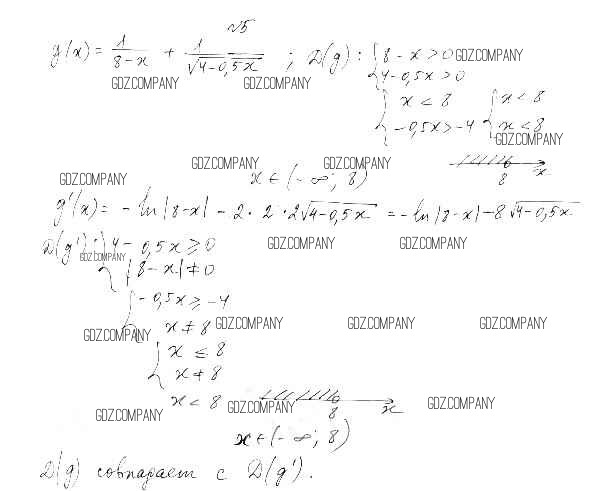 √5
y(x) = 1/(8-x) + 1/√(4-0,5x) ; D(g): { 8-x>0 GDZ.COMPANY
4-0,5x>0
GDZ.COMPANY GDZ.COMPANY
{ x<8 { x<8
-0,5x>-4 x<8
GDZ.COMPANY
GDZ.COMPANY GDZ.COMPANY
8 x
GDZ.COMPANY x∈(-∞; 8)
g'(x) = -ln|8-x| - 2·2·2√(4-0,5x) = -ln|8-x| - 8√(4-0,5x)
D(g'): { 4-0,5x≥0 GDZ.COMPANY GDZ.COMPANY
GDZ.COMPANY
|8-x|≠0
{ -0,5x≥-4
x≠8 GDZ.COMPANY GDZ.COMPANY GDZ.COMPANY
GDZ.COMPANY
{ x≤8
x≠8
x<8 GDZ.COMPANY 8 x GDZ.COMPANY
GDZ.COMPANY
x∈(-∞; 8)
D(g) совпадает с D(g').